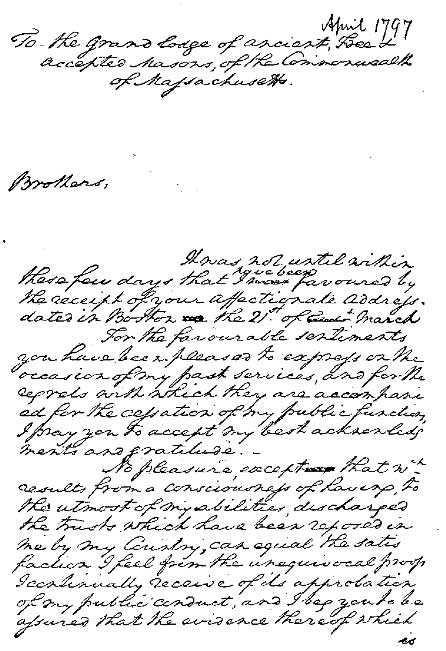 April 1797
To the Grand Lodge of ancient, Free &
accepted Masons, of the Commonwealth
of Massachusetts.
Brothers,
It was not until within
have been
these few days that I favoured by
the receipt of your affectionate Address
dated in Boston the 21st of March
For the favourable sentiments
you have been pleased to express on the
occasion of my past services, and for the
regrets with which they are accompani
ed for the cessation of my public functions,
I pray you to accept my best acknowledg
ments and gratitude.—
No pleasure, except that wch
results from a consciousness of having, to
the utmost of my abilities, discharged
the trusts which have been reposed in
me by my Country, can equal the satis
faction I feel from the unequivocal proofs
I continually receive of its approbation
of my public conduct, and I beg you to be
assured that the evidence thereof which
is